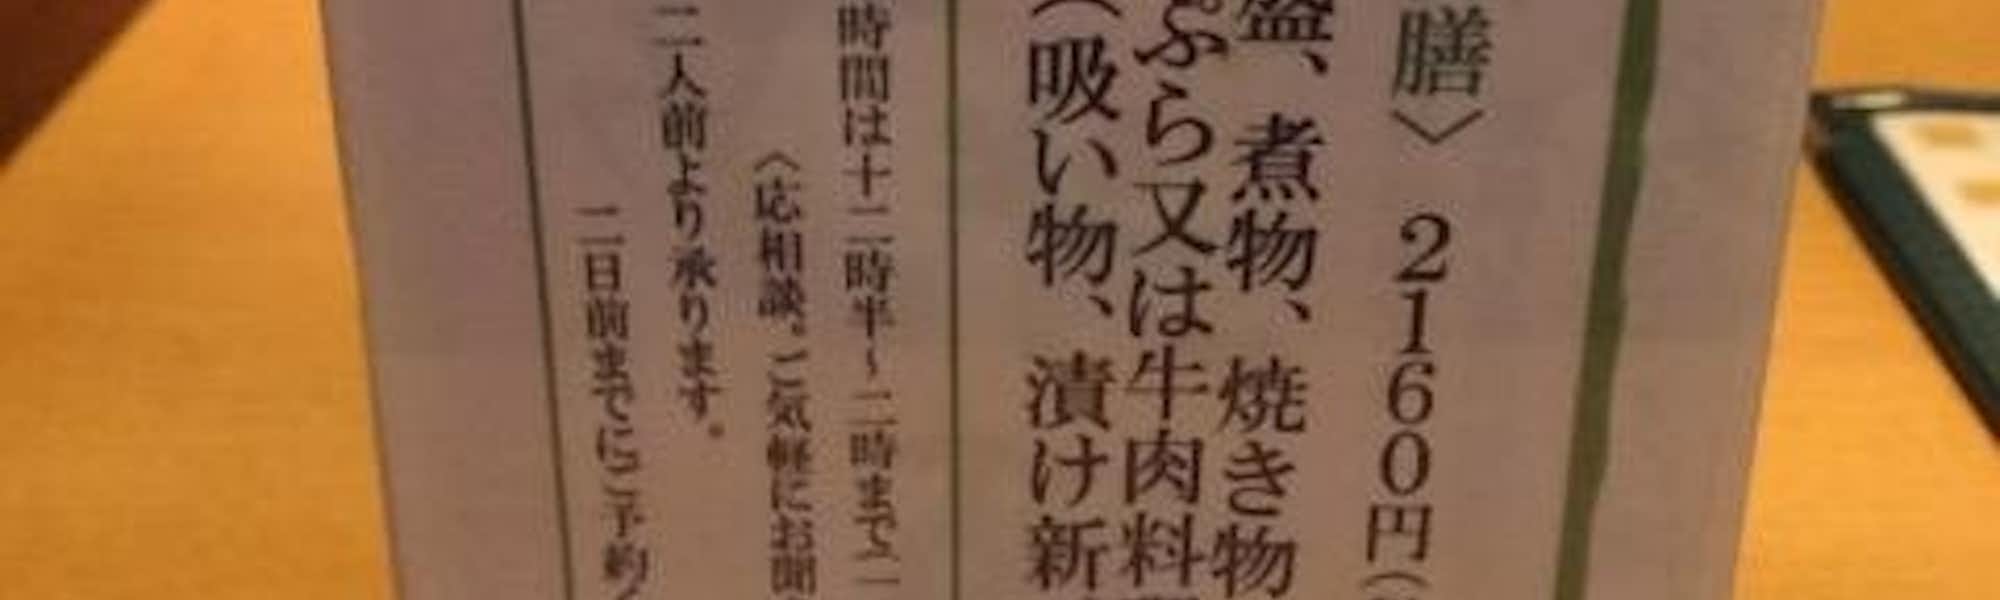 膳〉 2160円（
盛、煮物、焼き物
ぷら又は牛肉料
（吸い物、漬け新
時間は十二時半～二時まで
〈応相談。ご気軽にお聞
二人前より承ります。
二日前までにご予約